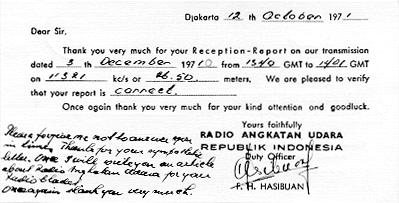 Djakarta 12 th October 1971
Dear Sir.
Thank you very much for your Reception-Report on our transmission
dated 3 th December 1970 from 1340 GMT to 1401 GMT
on 11321 kc/s or 26.50 meters. We are pleased to verify
that your report is correct.
Once again thank you very much for your kind attention and goodluck.
Yours faithfully
RADIO ANGKATAN UDARA
REPUBLIK INDONESIA
Duty Officer
F. H. HASIBUAN
Please forgive me not to answer
in time. Thanks for your sympathetic
letter. Once I will write you an article
about Radio Angkatan Udara for your
Radio
Once again thank you very much.